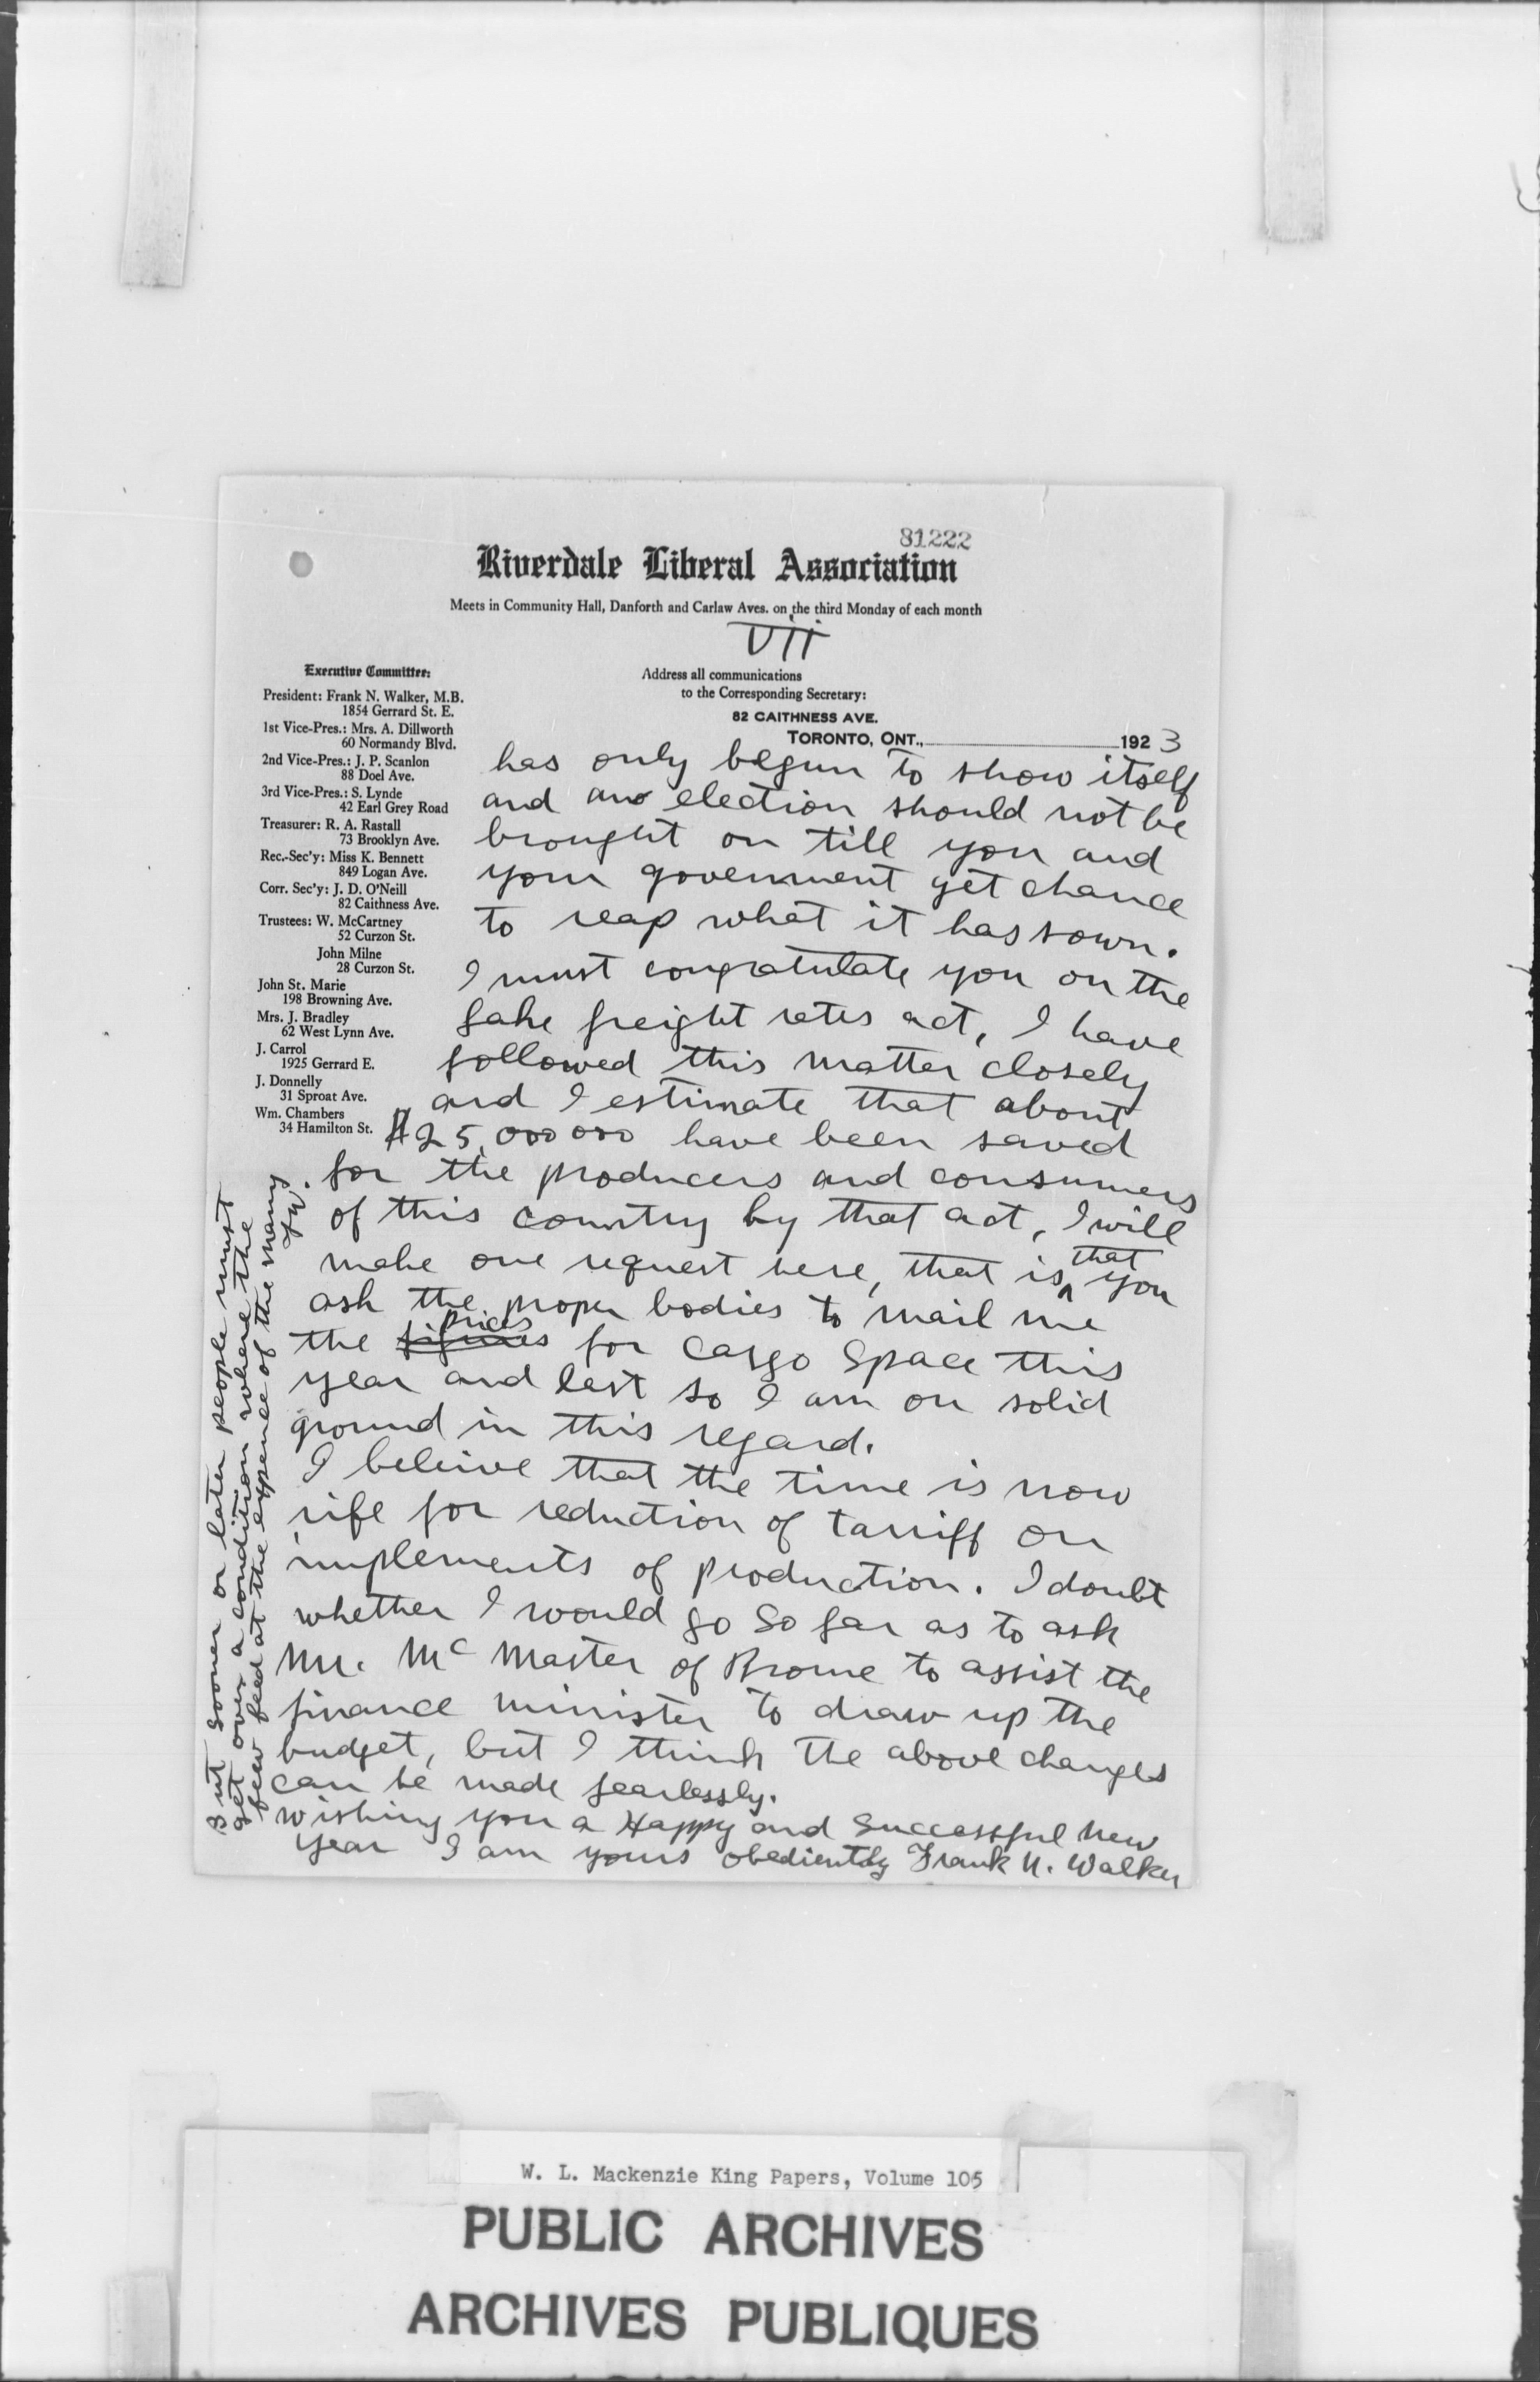 81222
Riverdale Liberal Association
Meets in Community Hall, Danforth and Carlaw Aves. on the third Monday of each month
VII
Executive Committee:
President: Frank N. Walker, M.B.
1854 Gerrard St. E.
1st Vice-Pres.: Mrs. A. Dillworth
60 Normandy Blvd.
2nd Vice-Pres.: J. P. Scanlon
88 Doel Ave.
3rd Vice-Pres.: S. Lynde
42 Earl Grey Road
Treasurer: R. A. Rastall
73 Brooklyn Ave.
Rec.-Sec'y: Miss K. Bennett
849 Logan Ave.
Corr. Sec'y: J. D. O'Neill
82 Caithness Ave.
Trustees: W. McCartney
52 Curzon St.
John Milne
28 Curzon St.
John St. Marie
198 Browning Ave.
Mrs. J. Bradley
62 West Lynn Ave.
J. Carrol
1925 Gerrard E.
J. Donnelly
31 Sproat Ave.
Wm. Chambers
34 Hamilton St.
Address all communications
to the Corresponding Secretary:
82 CAITHNESS AVE.
TORONTO, ONT., 1923
has only begun to show itself
and an election should not be
brought on till you and
your government get chance
to reap what it has sown.
I must congratulate you on the
lake freight rates act, I have
followed this matter closely
and I estimate that about
$25,000000 have been saved
for the producers and consumers
of this country by that act, I will
make one request here, that is that you
ask the proper bodies to mail me
the figures prices for cargo space this
year and last so I am on solid
ground in this regard.
I beleive that the time is now
rife for reduction of tarriff on
implements of production. I doubt
whether I would go so far as to ask
Mr. McMaster of Brome to assist the
finance minister to draw up the
budget, but I think the above changes
can be made fearlessly.
Wishing you a Happy and Successful New
Year I am yours obediently Frank N. Walker
But sooner or later people must
get over a condition where the
few feed at the expence of the many
FW.
W. L. Mackenzie King Papers, Volume 105
PUBLIC ARCHIVES
ARCHIVES PUBLIQUES